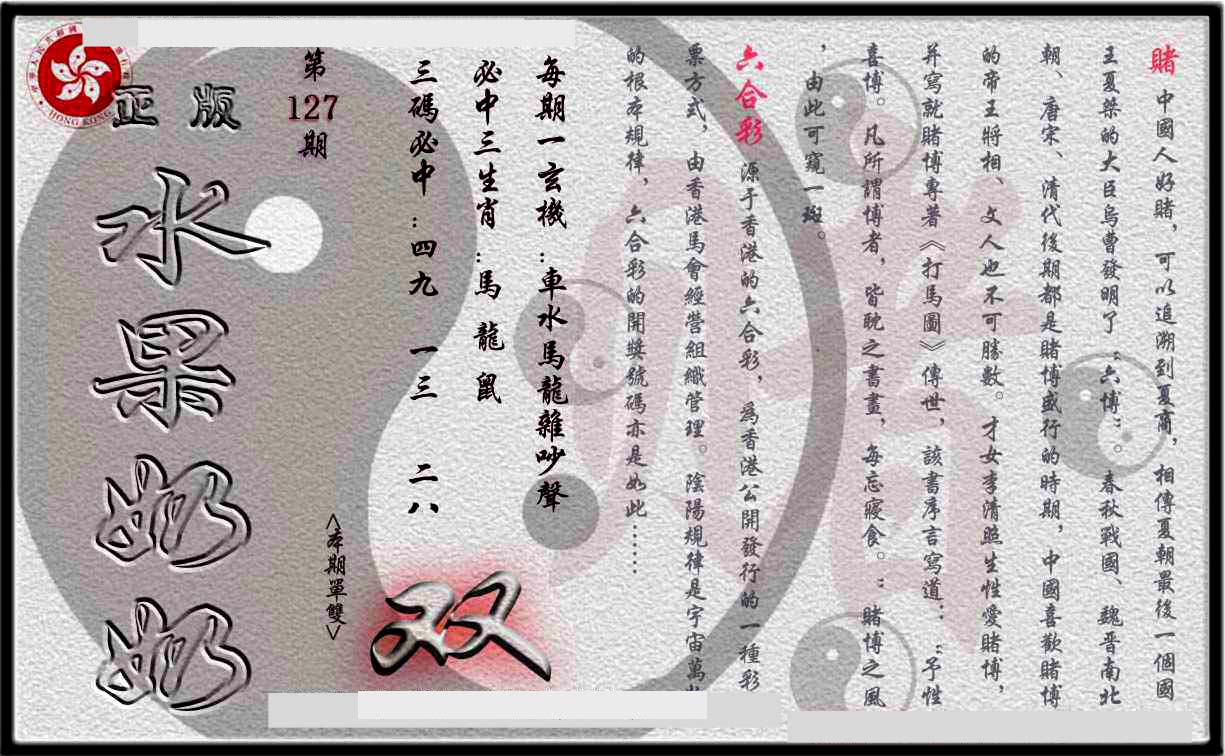 賭 中國人好賭，可以追溯到夏商，相傳夏朝最後一個國
王夏桀的大臣烏曹發明了“六博”。春秋戰國、魏晋南北
朝、唐宋、清代後期都是賭博盛行的時期，中國喜歡賭博
的帝王將相、文人也不可勝數。才女李清照生性愛賭博，
并寫就賭博專著《打馬圖》傳世，該書序言寫道：“予性
喜博。凡所謂博者，皆耽之書畫，每忘寢食。”賭博之風
，由此可窺一斑。
六合彩 源于香港的六合彩，爲香港公開發行的一種彩
票方式，由香港馬會經營組織管理。陰陽規律是宇宙萬物
的根本規律，六合彩的開獎號碼亦是如此……
每期一玄機：車水馬龍雜吵聲
必中三生肖：馬 龍 鼠
三碼必中：四九 一三 二八
<本期單雙>
双
第127期
正版
水果奶奶
HONG KONG